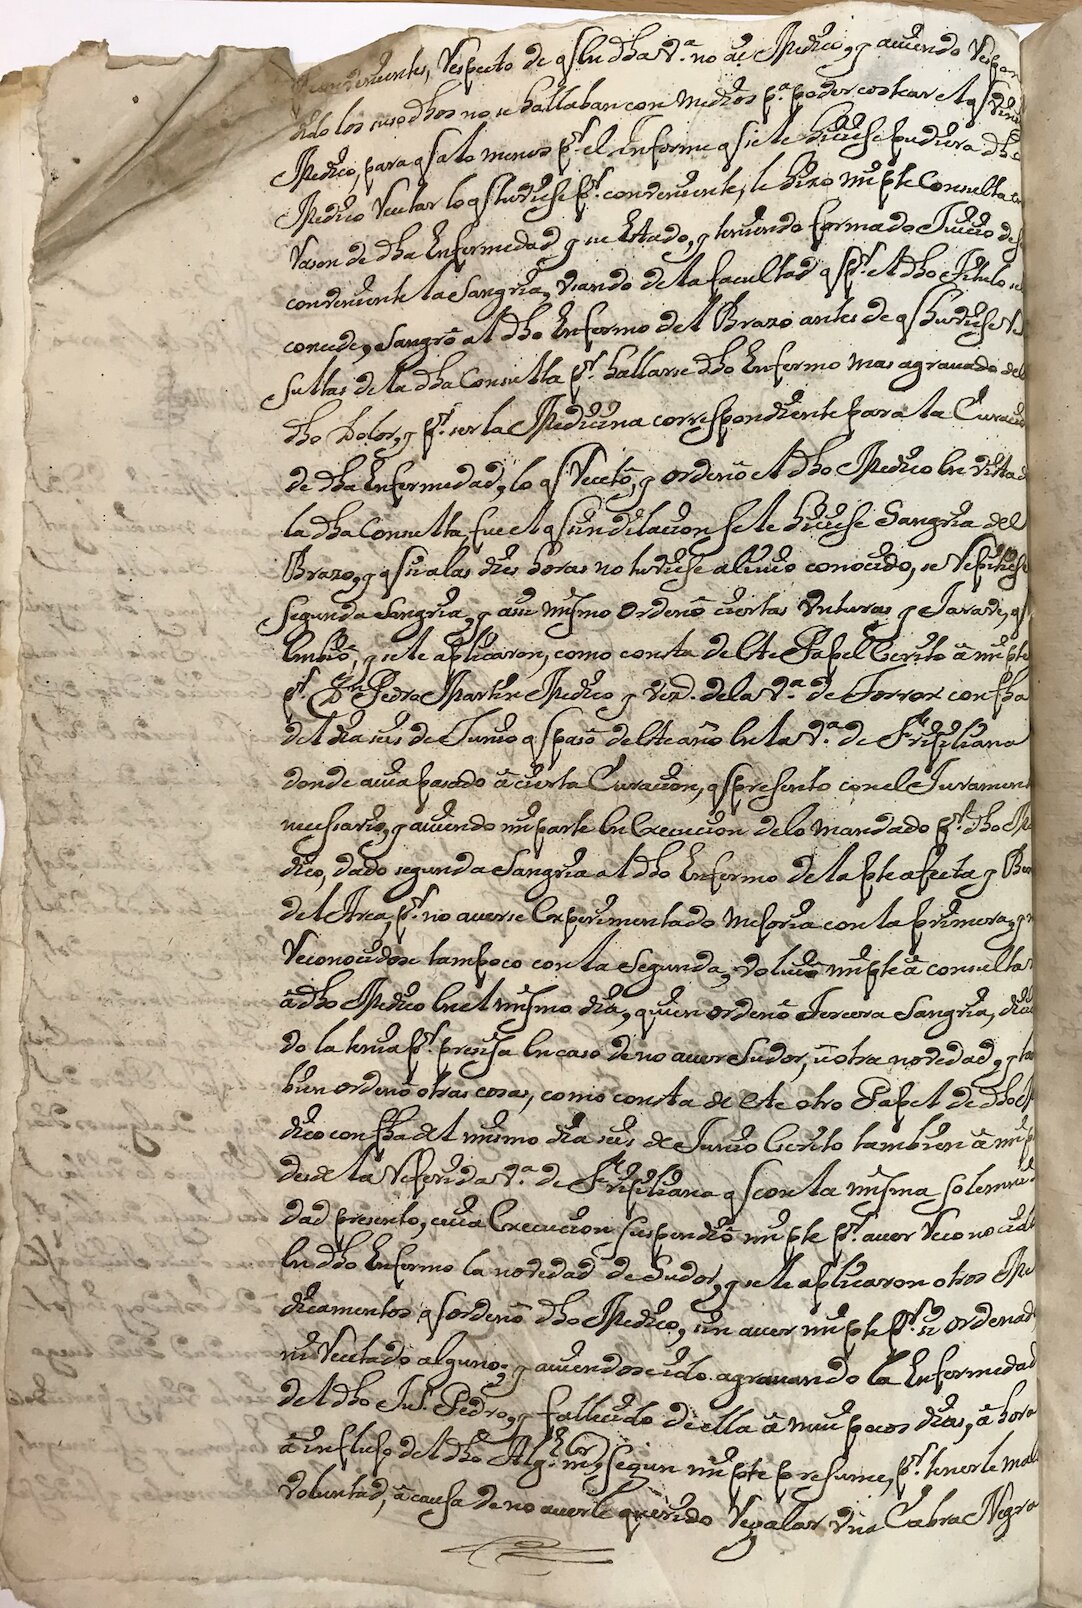 Respecto de q̃ en dha Vª. no ai Medico, y auiendo Respon
dido los susodhos no se hallaban con medios pª. poder costear el q̃ Viniese
Medico, para q̃ a lo menos pr. el Informe q̃ se le hiciese pudiera dho
Medico Recetar lo q̃ tuviese pr. conveniente, le hizo mi pte Consulta con
Rason de dha Enfermedad y su Estado, y teniendo formado Juicio de ser
conveniente la Sangria, usando de la facultad q̃ pr. el dho Titulo se le
concede, Sangrò al dho Enfermo del Brazo antes de q̃ huviese Re
sultas de la dha Consulta pr. hallarse dho Enfermo mas agravado del
dho Dolor, y pr. ser la Medicina correspondiente para la Curacion
de dha Enfermedad, lo q̃ Recetò, y ordenò el dho Medico en vista de
la dha Consulta, fue el q̃ sin dilacion se le hiciese Sangria del
Brazo, y q̃ si a las dies horas no tuviese alivio conocido, se Repitiese
Segunda Sangria, y asi mismo ordenò ciertas Unturas y Jarave, q̃
embiò, y se le aplicaron, como consta de este Papel Escrito â mi pte
pr. Dn. Pedro Martin Medico y vezº. de la Vª. de Torrox con fha
del dia seis de Junio q̃ pasò de este año en la Vª. de Frixiliana
donde auia pasado â cierta Curacion, q̃ presento con el Jurament
necesario, y auiendo mi parte en Execucion de lo mandado pr. dho Me
dico, dado segunda Sangria al dho Enfermo de la pte afecta y Vena
del Arca, pr. no averse Experimentado Mejoria con la primera, y no
Reconocidose tampoco con la Segunda, volviò mi pte â consultar
â dho Medico en el mismo dia, quien ordenò Tercera Sangria, dicien
do la tenia pr. presisa en caso de no aver Sudor, ù otra novedad, y tam
bien ordenò otras cosas, como consta de este otro Papel de dho Me
dico con fha del mismo dia seis de Junio Escrito tambien â mi pte
desde la Referida Vª. de Frixiliana q̃ con la misma solemni
dad presento, cuia Execucion suspendiò mi pte pr. aver Reconocido
en dho Enfermo la novedad de Sudor, y se le aplicaron otros Me
dicamentos q̃ ordenò dho Medico, sin aver mi pte pr. si ordenado
ni Recetado alguno; y auiendose ido agravando la Enfermedad
del dho Jun. Pedro, y fallecido de ella â mui pocos dias, â hora
â influjo del dho Alg. mr. segun mi pte presume, pr. tenerle mala
voluntad, â causa de no averle querido Regalar una Cabra Negra